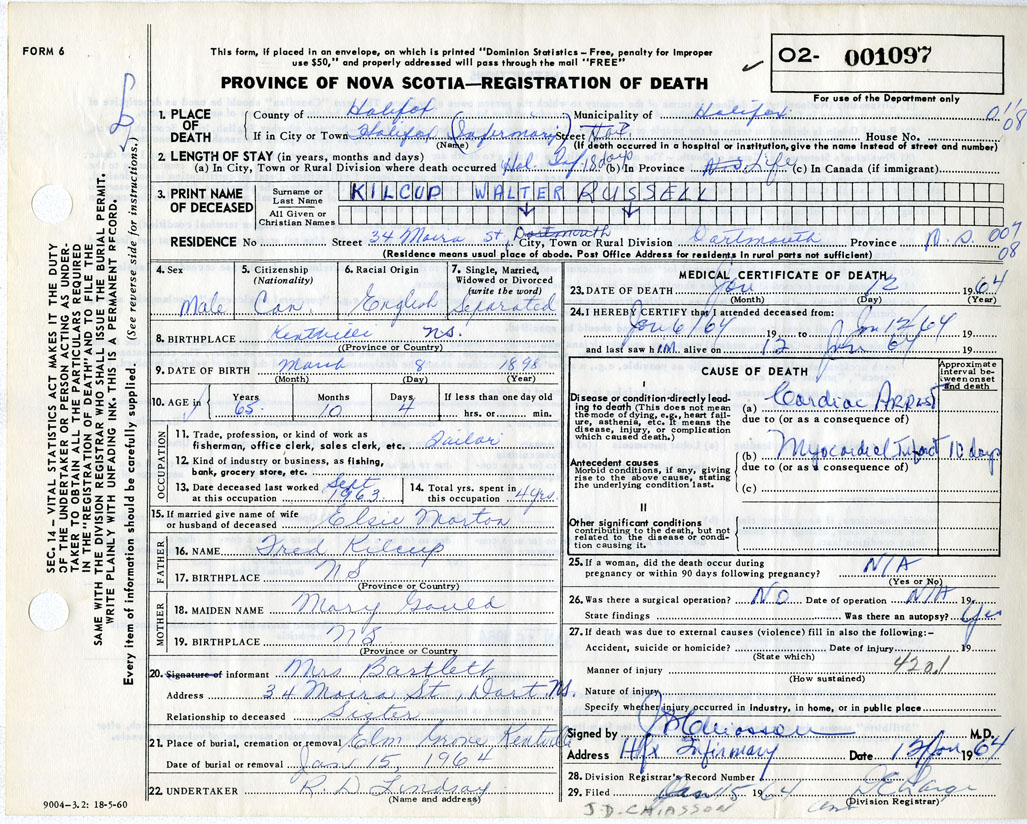 FORM 6
This form, if placed in an envelope, on which is printed "Dominion Statistics – Free, penalty for improper
use $50," and properly addressed will pass through the mail "FREE"
O2- 001097
PROVINCE OF NOVA SCOTIA—REGISTRATION OF DEATH
For use of the Department only
1. PLACE OF DEATH
County of Halifax Municipality of Halifax
08
If in City or Town Halifax (Infirmary) Street House No.
(Name) (If death occurred in a hospital or institution, give the name instead of street and number)
2. LENGTH OF STAY (in years, months and days)
(a) In City, Town or Rural Division where death occurred 18 days (b) In Province Life (c) In Canada (if immigrant)
3. PRINT NAME OF DECEASED
Surname or Last Name KILCUP WALTER RUSSELL
All Given or Christian Names
RESIDENCE No Street 34 Moira St. Dartmouth City, Town or Rural Division Dartmouth Province N.S. 007
08
(Residence means usual place of abode. Post Office Address for residents in rural parts not sufficient)
4. Sex Male
5. Citizenship (Nationality) Can.
6. Racial Origin English
7. Single, Married, Widowed or Divorced (write the word) Separated
8. BIRTHPLACE Kentville N.S.
(Province or Country)
9. DATE OF BIRTH March 8 1898
(Month) (Day) (Year)
10. AGE in Years 65 Months 10 Days 4 If less than one day hrs. or min.
OCCUPATION
11. Trade, profession, or kind of work as
fisherman, office clerk, sales clerk, etc.
12. Kind of industry or business, as fishing,
bank, grocery store, etc.
13. Date deceased last worked at this occupation Sept 1963
14. Total yrs. spent in this occupation 4 yrs.
15. If married give name of wife
or husband of deceased Elsie Morton
FATHER
16. NAME Fred Kilcup
17. BIRTHPLACE NS
(Province or Country)
MOTHER
18. MAIDEN NAME Mary Gould
19. BIRTHPLACE NS
(Province or Country
20. Signature of informant Mrs Bartlett
Address 34 Moira St., Dart. N.S.
Relationship to deceased Sister
21. Place of burial, cremation or removal Elm Grove Kentville
Date of burial or removal Jan 15, 1964
22. UNDERTAKER R. D. Lindsay
(Name and address)
9004-3.2: 18-5-60
MEDICAL CERTIFICATE OF DEATH
23. DATE OF DEATH Jan 12 1964
(Month) (Day) (Year)
24. I HEREBY CERTIFY that I attended deceased from:
Jan 6/64 19 to Jan 12/64 19
and last saw h I.M. alive on 12 Jan 64 19
CAUSE OF DEATH
Approximate interval between onset and death
I
Disease or condition directly leading to death (This does not mean the mode of dying, e.g., heart failure, asthenia, etc. It means the disease, injury, or complication which caused death.)
(a) Cardiac Arrest
due to (or as a consequence of)
(b) Myocardial Infarct 10 days
due to (or as a consequence of)
(c)
Antecedent causes
Morbid conditions, if any, giving rise to the above cause, stating the underlying condition last.
II
Other significant conditions
contributing to the death, but not related to the disease or condition causing it.
25. If a woman, did the death occur during
pregnancy or within 90 days following pregnancy? N/A
(Yes or No)
26. Was there a surgical operation? NO Date of operation N/A 19
State findings Was there an autopsy? Yes
27. If death was due to external causes (violence) fill in also the following:–
Accident, suicide or homicide? Date of injury 19
(State which) 420.1
Manner of injury
(How sustained)
Nature of injury
Specify whether injury occurred in industry, in home, or in public place
Signed by J D Chiasson M.D.
Address Hfx Infirmary Date 12 Jan 1964
28. Division Registrar's Record Number
29. Filed Jan 15 1964
(Division Registrar)
J.D. CHIASSON
SEC. 14 – VITAL STATISTICS ACT MAKES IT THE DUTY
OF THE UNDERTAKER OR PERSON ACTING AS UNDER-
TAKER TO OBTAIN ALL THE PARTICULARS REQUIRED
IN THE "REGISTRATION OF DEATH" AND TO FILE THE
SAME WITH THE DIVISION REGISTRAR WHO SHALL ISSUE THE BURIAL PERMIT.
WRITE PLAINLY WITH UNFADING INK. THIS IS A PERMANENT RECORD.
Every item of information should be carefully supplied. (See reverse side for instructions.)